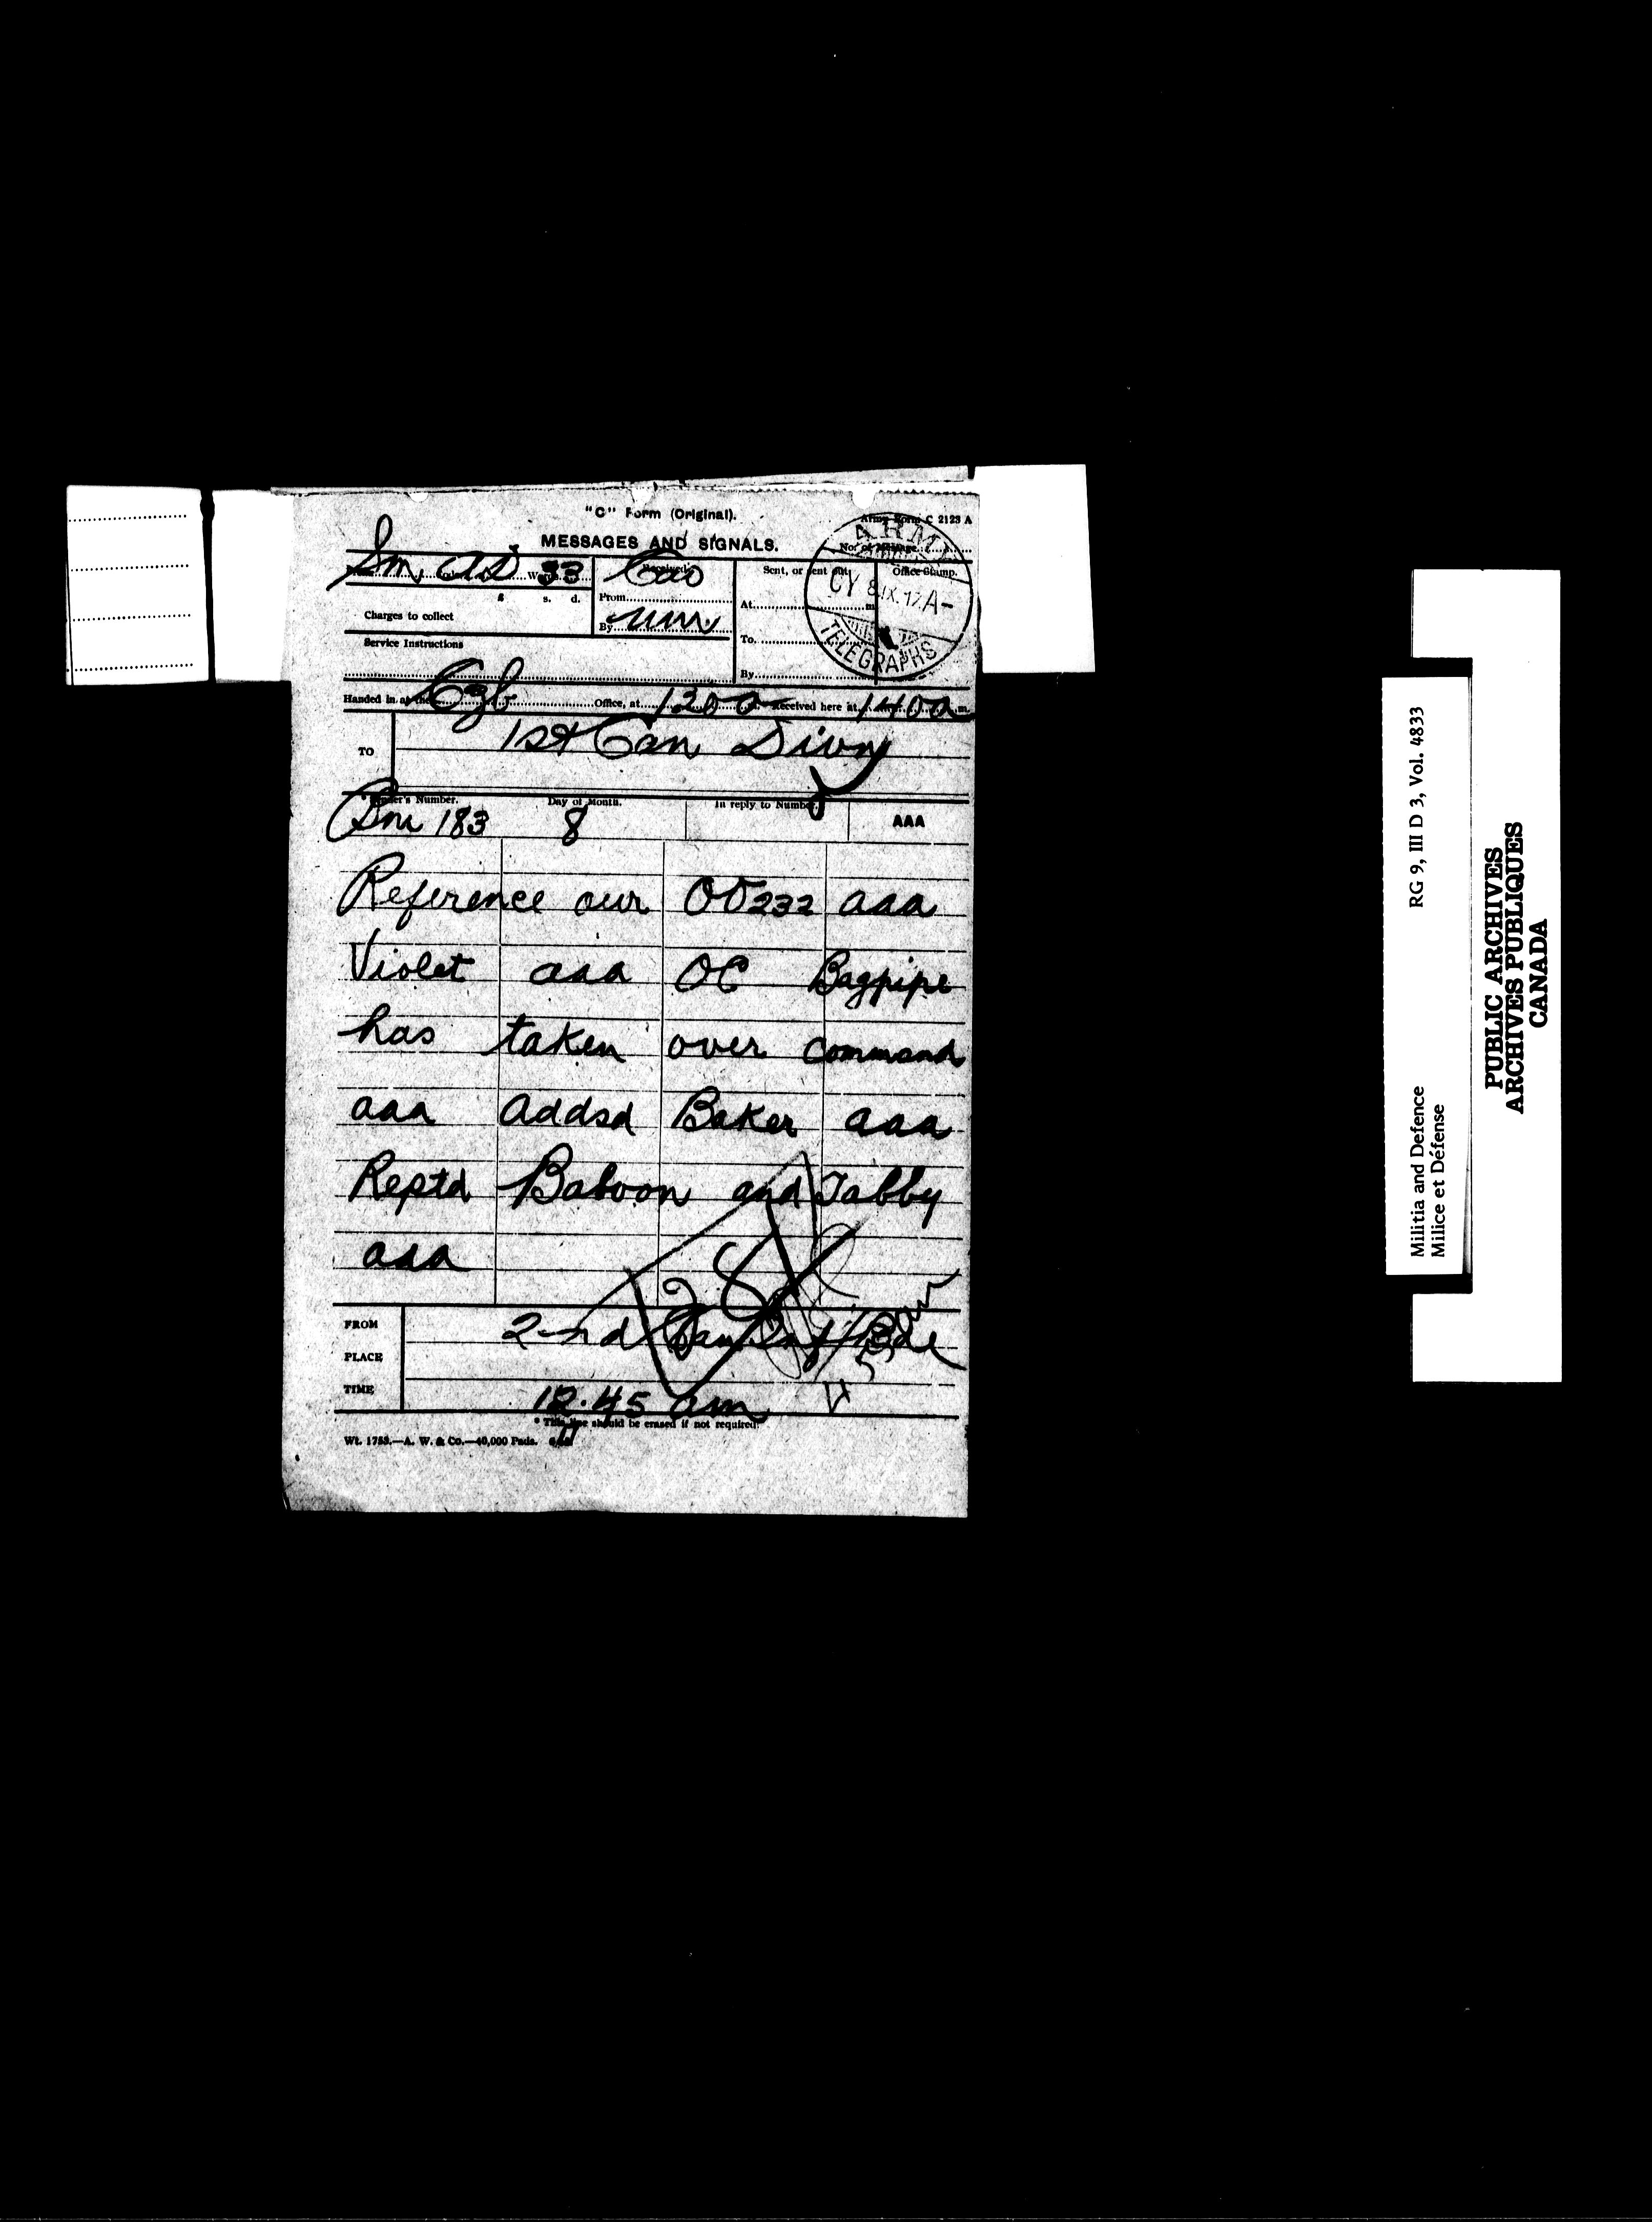 "C" Form (Original).
Army Form C 2123 A
MESSAGES AND SIGNALS.
No. of Message
Sm, 33
Received
Sent, or sent out
Office Stamp.
£ s. d.
Charges to collect
From
By
At m.
To
By
Service Instructions
ARMY
CY 8.IX.17.A-
TELEGRAPHS
Handed in at the Office, at 1200 Received here at 1400 m.
TO 1st Can Divn
Sender's Number. Day of Month. In reply to Number. AAA
Bm 183 8
Reference our OO232 aaa
Violet aaa OC Bagpipe
has taken over command
aaa addsd Baker aaa
Reptd Baboon and Tabby
aaa
FROM 2nd Can Inf Bde
PLACE
TIME 12.45 am
* This line should be erased if not required.
Wt. 1753.—A. W. & Co.—40,000 Pads.
RG 9, III D 3, Vol. 4833
Militia and Defence
Milice et Défense
PUBLIC ARCHIVES
ARCHIVES PUBLIQUES
CANADA